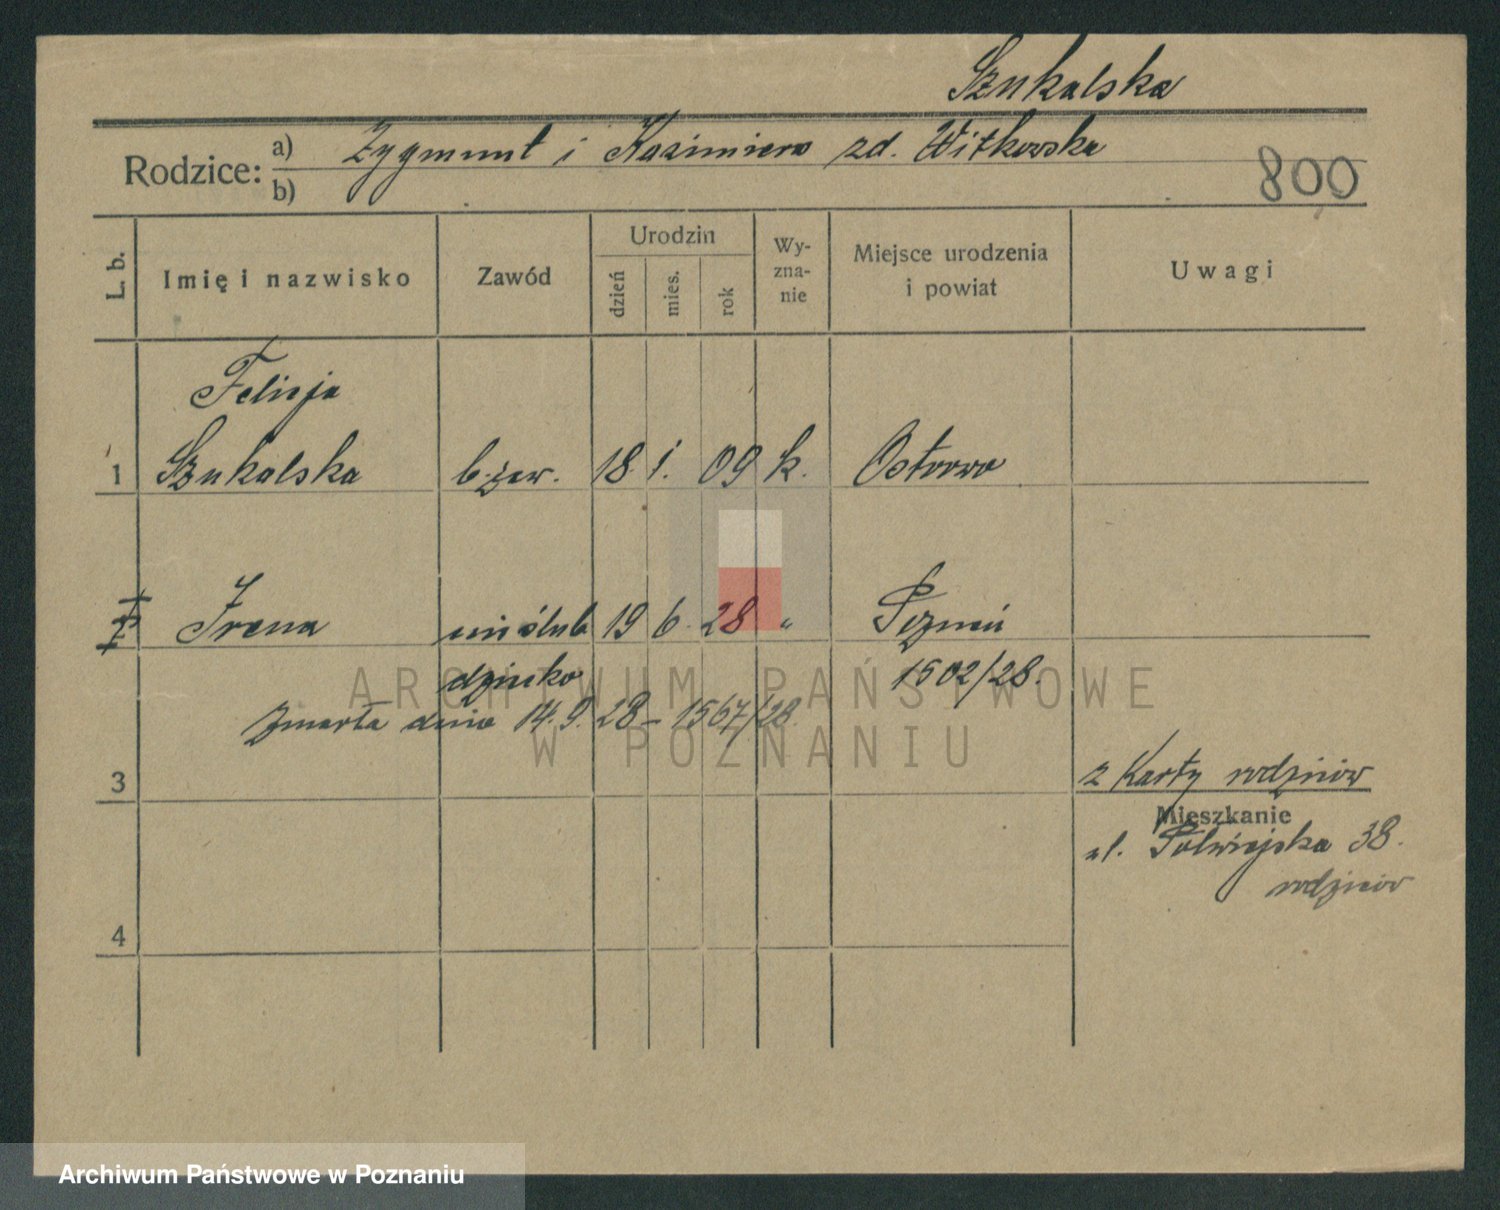 Szukalska
Rodzice: a) Zygmunt i Kazimiera zd. Witkowska
b)
800
L. b.
Imię i nazwisko
Zawód
Urodzin
dzień
mies.
rok
Wy-
zna-
nie
Miejsce urodzenia
i powiat
Uwagi
Felicja
1 Szukalska b. zaw. 18. 1. 09 k. Ostrowo
Irena nieślub 19 6. 28 " Poznań
dziecko 1502/28.
Zmarła dnia 14.9.28 – 1567/28.
3
z Karty rodziców
Mieszkanie
ul. Półwiejska 38.
rodziców
4
ARCHIWUM PAŃSTWOWE
W POZNANIU
Archiwum Państwowe w Poznaniu